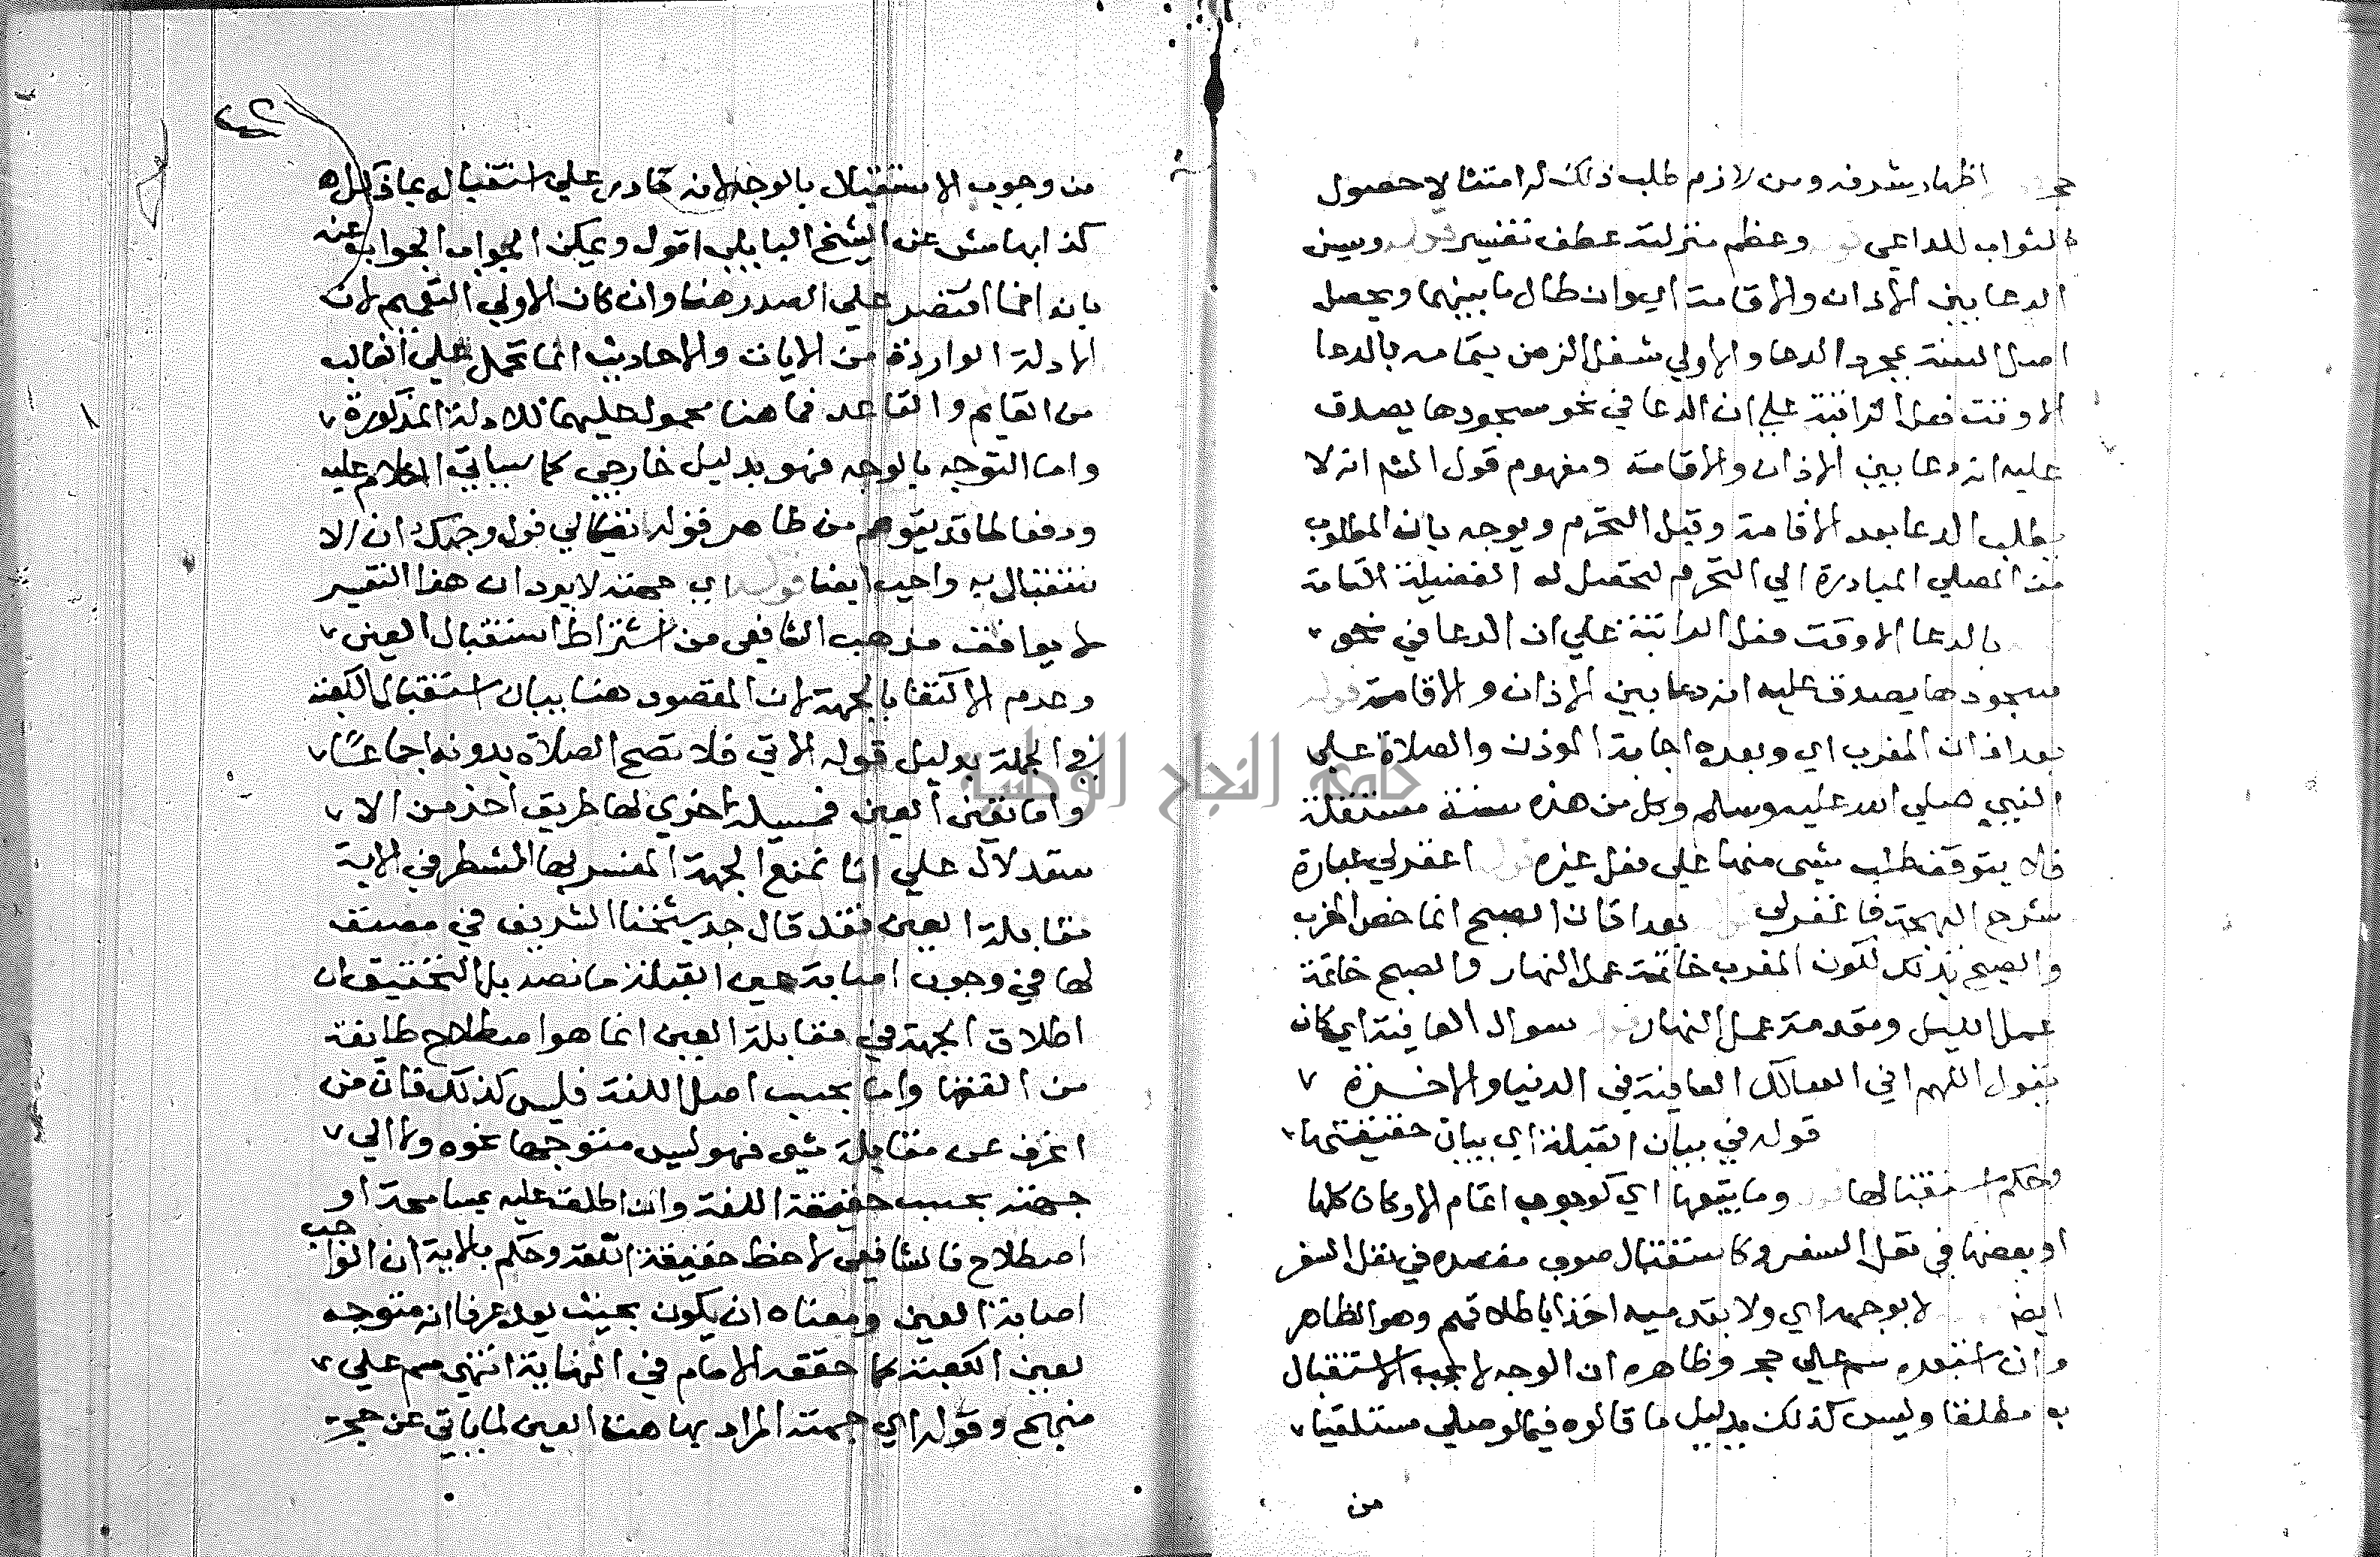 حجر اظهار شرفه ومن لازم طلب ذلك له امتثالا حصول
الثواب للداعي وعظم منزلته عطف تفسير قوله وسن
الدعا بين الاذان والاقامة اي وان طال ما بينهما ويحصل
اصل السنة بمجرد الدعا والاولي شغل الزمن بتمامه بالدعا
الا وقت فعل الراتبة علي ان الدعا في نحو سجودها يصدق
عليه انه دعا بين الاذان والاقامة ومفهوم قول الشم انه لا
يطلب الدعا بعد الاقامة وقبل التحرم ويوجه بان المطلوب
من المصلي المبادرة الي التحرم لتحصل له الفضيلة التامة
بالدعا الا وقت فعل الراتبة علي ان الدعا في نحو
سجودها يصدق عليه انه دعا بين الاذان والاقامة قوله
بعد اذان المغرب اي وبعده اجابة الموذن والصلاة علي
النبي صلي الله عليه وسلم وكل من هذه سنة مستقلة
فلا يتوقف طلب شي منها علي فعل غيره قوله اغفر لي عبارة
شرح البهجة فاغفر لي بعد اذان الصبح انما خص المغرب
والصبح بذلك لكون المغرب خاتمة عمل النهار والصبح خاتمة
عمل الليل ومقدمة عمل النهار سوال العافية اي كان
يقول اللهم اني اسالك العافية في الدنيا والاخرة
قوله في بيان القبلة اي بيان حقيقتها
وحكم استقبالها وما يتبعها اي كوجوب اتمام الاركان كلها
او بعضها في نفل السفر وكاستقبال صوب مقصده في نفل السفر
ايضا لا بوجهه اي ولا بقدميه اخذا باطلاقهم وهو الظاهر
وان استبعده سم علي حجر وظاهره ان الوجه لا يجب الاستقبال
به مطلقا وليس كذلك بدليل ما قالوه فيما لو صلي مستلقيا
من
من وجوب الاستقبال بالوجه لانه قادر علي استقباله بما ذكر اه
كذا بهامش عن الشيخ البابلي اقول ويمكن الجواب الجواب عنه
بانه انما اقتصر علي الصدر هنا وان كان الاولي التعميم لان
الادلة الواردة من الايات والاحاديث انما تحمل علي الغالب
من القايم والقاعد فما هنا محمول عليهما للادلة المذكورة
واما التوجه بالوجه فهو بدليل خارجي كما سياتي الكلام عليه
ودفعا لما قد يتوهم من ظاهر قوله تعالي فول وجهك ان الا
ستقبال به واجب ايضا قوله اي جهته لا يرد ان هذا التفسير
لا يوافق مذهب الشافعي من اشتراط استقبال العين
وعدم الاكتفا بالجهة لان المقصود هنا بيان استقبال الكعبة
في الجملة بدليل قوله الاتي فلا تصح الصلاة بدونه اجماعا
واما تعين العين فمسيلة اخري لها طريق اخر من الا
ستدلال علي انا نمنع الجهة المفسر بها الشطر في الاية
مقابلة العين فقد قال جد شيخنا الشريف في مصنف
لها في وجوب اصابة عين القبلة ما نصه بل التحقيق ان
اطلاق الجهة في مقابلة العين انما هو اصطلاح طايفة
من الفقها واما بحسب اصل اللغة فليس كذلك فان من
انحرف عن مقابلة شي فهو ليس متوجها نحوه ولا الي
جهته بحسب حقيقة اللغة وان اطلق عليه بمسامحة او
اصطلاح فالشافعي لاحظ حقيقة اللغة وحكم بالاية ان الواجب
اصابة العين ومعناه ان يكون بحيث يعد عرفا انه متوجه
لعين الكعبة كما حققه الامام في النهاية انتهي سم علي
منهج وقوله اي جهته المراد بها هنا العين لما ياتي عن حجر
جامعة النجاح الوطنية